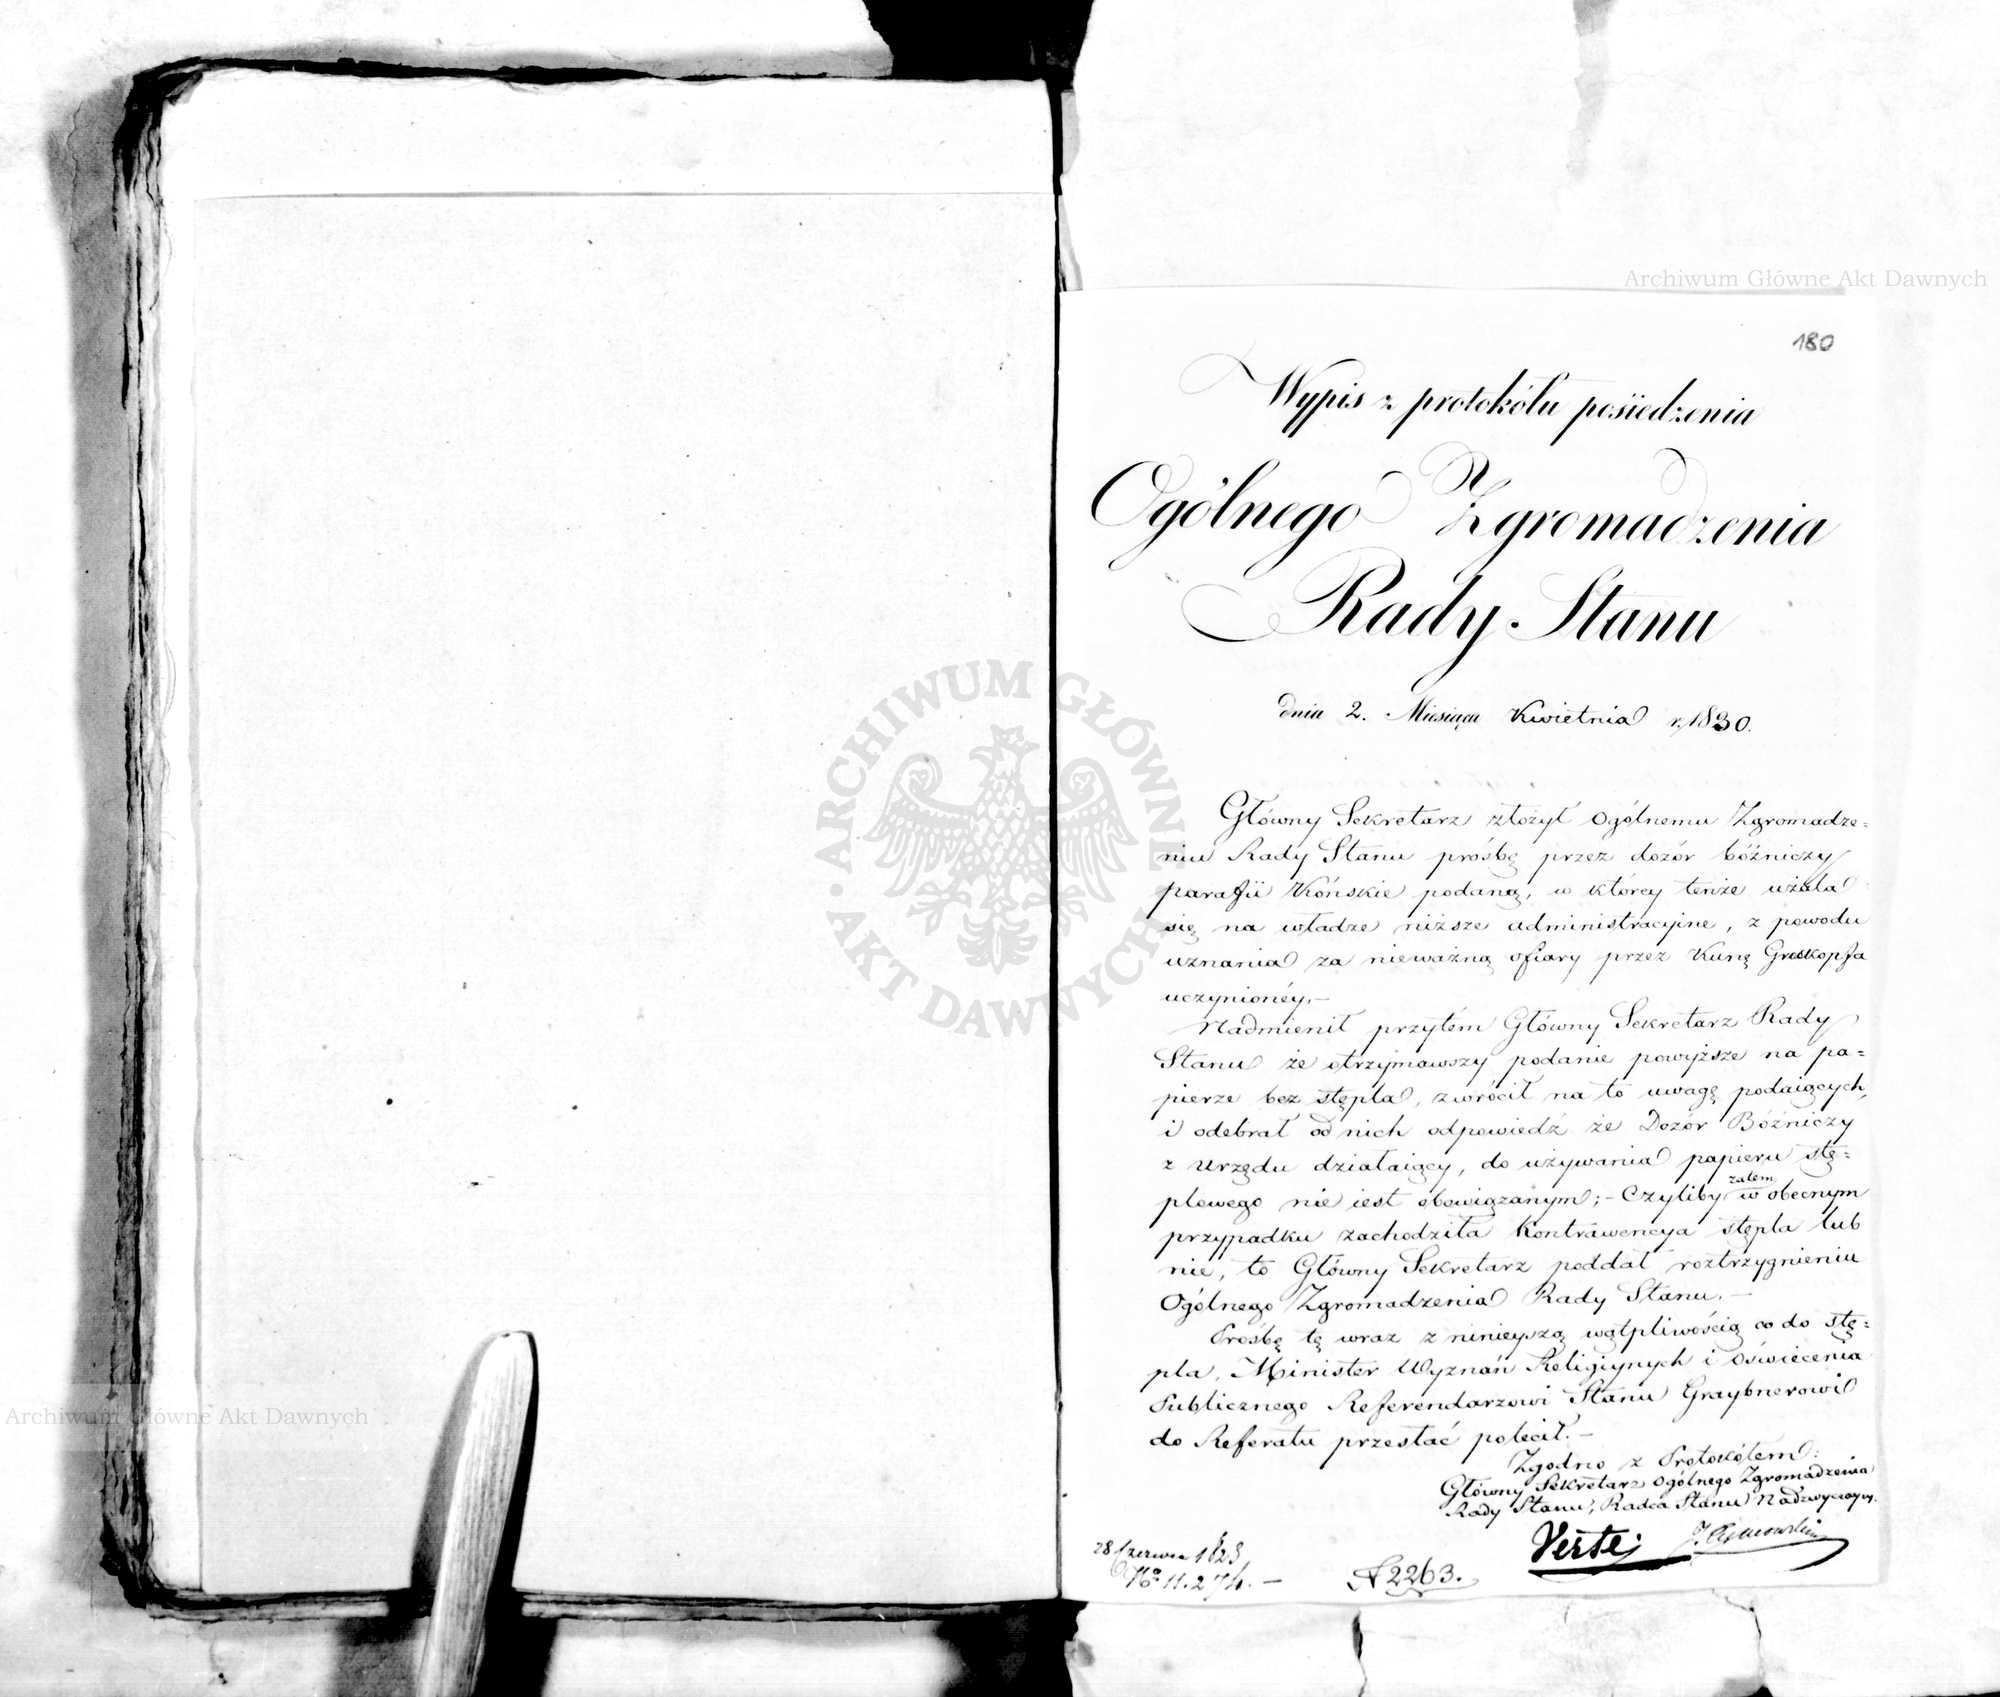 Archiwum Główne Akt Dawnych
180
Wypis z protokółu posiedzenia
Ogólnego Zgromadzenia
Rady Stanu
dnia 2. Miesiąca Kwietnia r. 1830.
Główny Sekretarz złożył Ogólnemu Zgromadze=
niu Rady Stanu prośbę przez dozór bóżniczy
parafii Końskie podaną, w którey tenże użala
się na władze niższe administracyjne, z powodu
uznania za nieważną ofiary przez Kunę Groskopfa
uczynionéy.–
Nadmienił przytém Główny Sekretarz Rady
Stanu że otrzymawszy podanie powyższe na pa=
pierze bez stępla, zwrócił na to uwagę podaiących,
i odebrał od nich odpowiedź że Dozór Bóżniczy
z Urzędu działaiący, do używania papieru stę=
plowego nie iest obowiązanym; – Czyliby zatem w obecnym
przypadku zachodziła Kontrawencya stępla lub
nie, to Główny Sekretarz poddał roztrzygnieniu
Ogólnego Zgromadzenia Rady Stanu. –
Prośbę tę wraz z ninieyszą wątpliwością co do stę=
pla, Minister Wyznań Religiynych i Oświecenia
Publicznego Referendarzowi Stanu Graybnerowi
do Referatu przesłać polecił. –
Zgodno z Protokółem:
Główny Sekretarz Ogólnego Zgromadzenia
Rady Stanu, Radca Stanu Nadzwyczayny.
Verte
28 Czerwca 1823
No 11.274. –
N 2263.
Archiwum Główne Akt Dawnych
ARCHIWUM GŁÓWNE AKT DAWNYCH